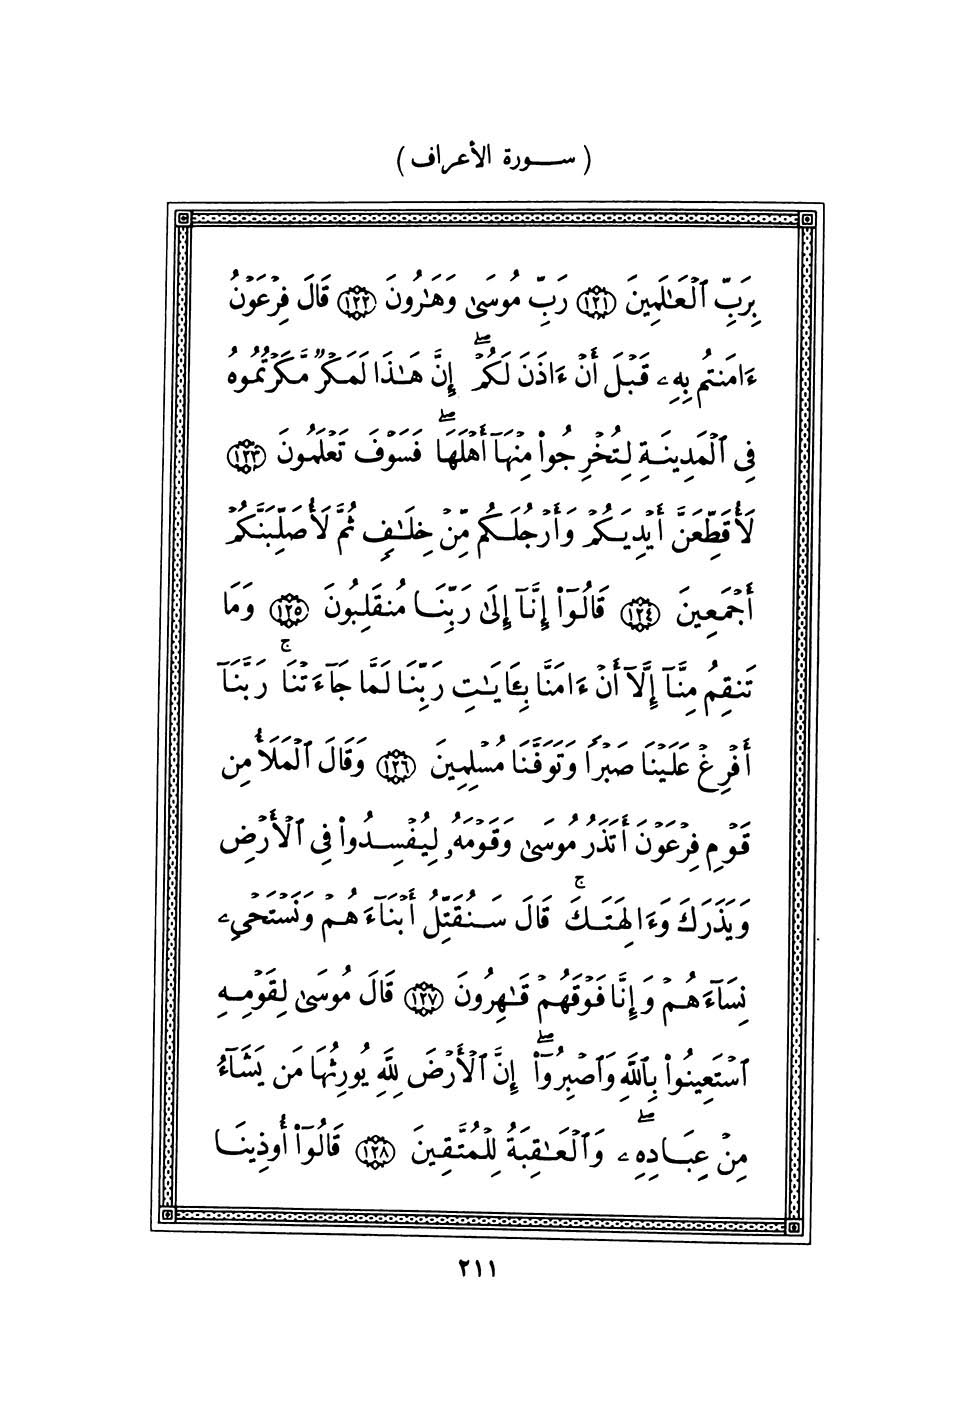 ( سورة الأعراف )
بِرَبِّ ٱلْعَـٰلَمِينَ ١٢١ رَبِّ مُوسَىٰ وَهَـٰرُونَ ١٢٢ قَالَ فِرْعَوْنُ
ءَامَنتُم بِهِۦ قَبْلَ أَنْ ءَاذَنَ لَكُمْ ۖ إِنَّ هَـٰذَا لَمَكْرٌ مَّكَرْتُمُوهُ
فِى ٱلْمَدِينَةِ لِتُخْرِجُوا۟ مِنْهَآ أَهْلَهَا ۖ فَسَوْفَ تَعْلَمُونَ ١٢٣
لَأُقَطِّعَنَّ أَيْدِيَكُمْ وَأَرْجُلَكُم مِّنْ خِلَـٰفٍ ثُمَّ لَأُصَلِّبَنَّكُمْ
أَجْمَعِينَ ١٢٤ قَالُوٓا۟ إِنَّآ إِلَىٰ رَبِّنَا مُنقَلِبُونَ ١٢٥ وَمَا
تَنقِمُ مِنَّآ إِلَّآ أَنْ ءَامَنَّا بِـَٔايَـٰتِ رَبِّنَا لَمَّا جَآءَتْنَا ۚ رَبَّنَآ
أَفْرِغْ عَلَيْنَا صَبْرًا وَتَوَفَّنَا مُسْلِمِينَ ١٢٦ وَقَالَ ٱلْمَلَأُ مِن
قَوْمِ فِرْعَوْنَ أَتَذَرُ مُوسَىٰ وَقَوْمَهُۥ لِيُفْسِدُوا۟ فِى ٱلْأَرْضِ
وَيَذَرَكَ وَءَالِهَتَكَ ۚ قَالَ سَنُقَتِّلُ أَبْنَآءَهُمْ وَنَسْتَحْىِۦ
نِسَآءَهُمْ وَإِنَّا فَوْقَهُمْ قَـٰهِرُونَ ١٢٧ قَالَ مُوسَىٰ لِقَوْمِهِ
ٱسْتَعِينُوا۟ بِٱللَّهِ وَٱصْبِرُوٓا۟ ۖ إِنَّ ٱلْأَرْضَ لِلَّهِ يُورِثُهَا مَن يَشَآءُ
مِنْ عِبَادِهِۦ ۖ وَٱلْعَـٰقِبَةُ لِلْمُتَّقِينَ ١٢٨ قَالُوٓا۟ أُوذِينَا
٢١١